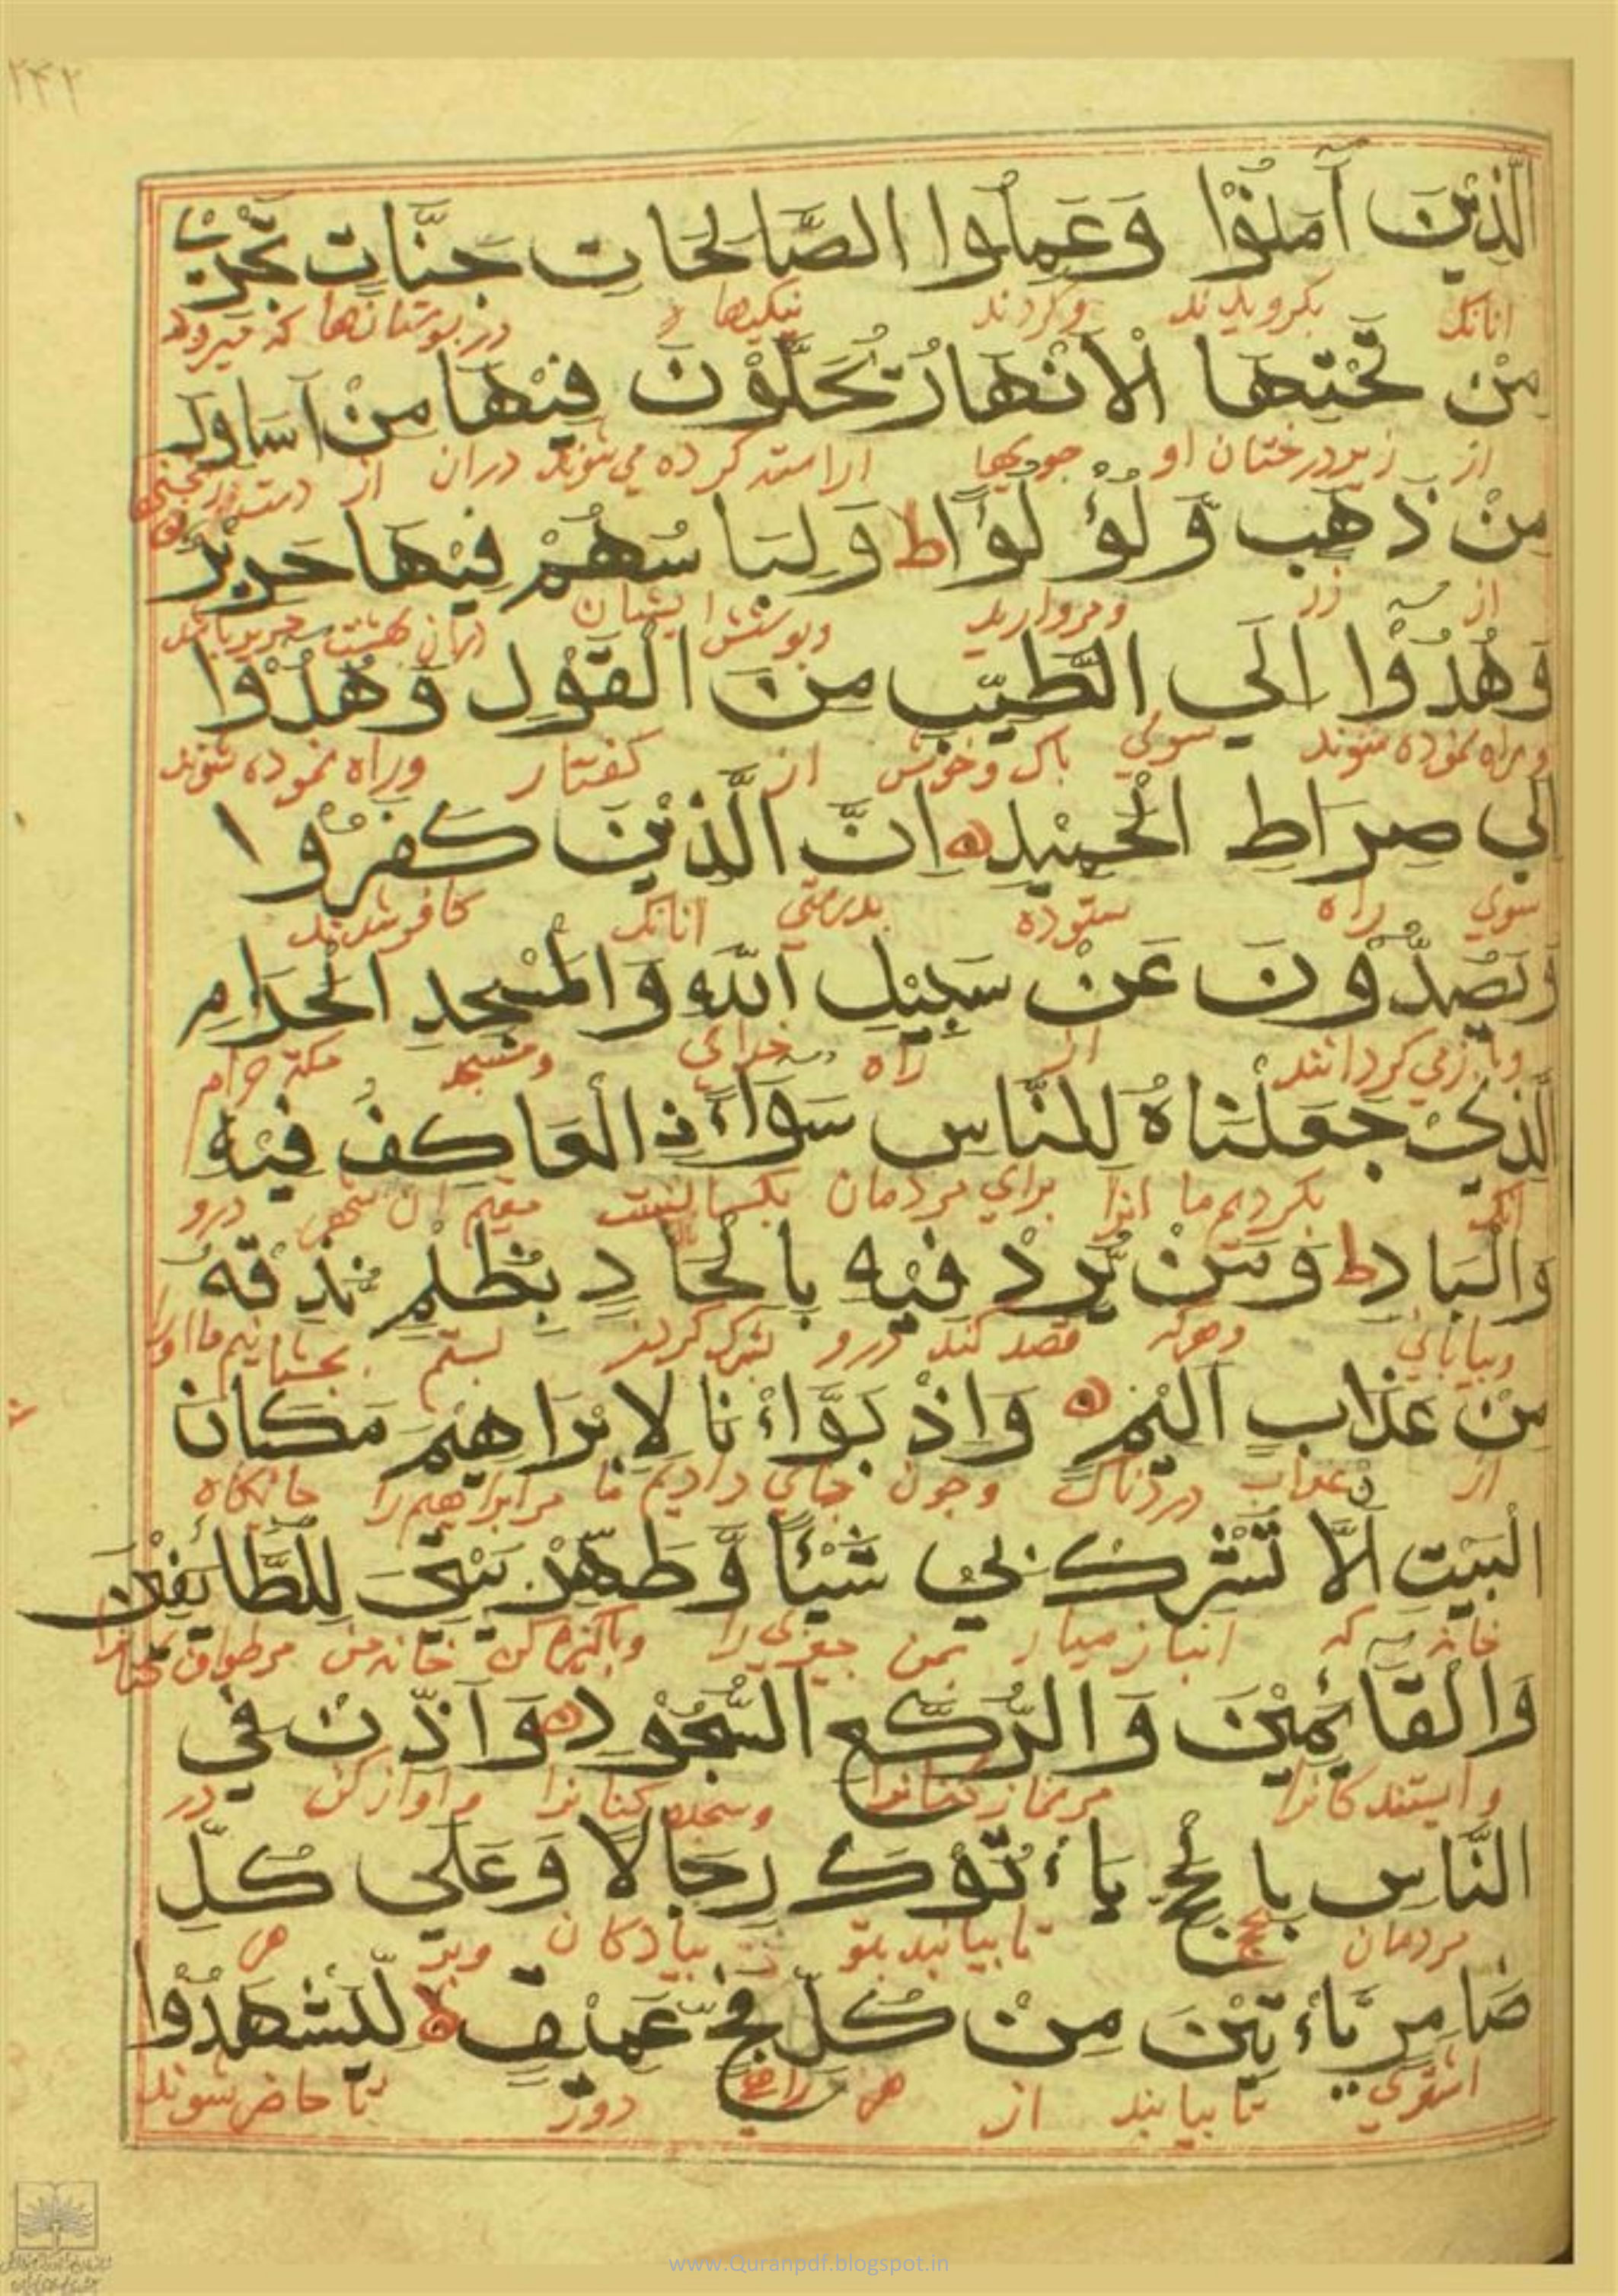 ۲۴۲
الَّذِيْنَ آمَنُوْا وَعَمِلُوا الصَّالِحَاتِ جَنَّاتٍ تَجْرِيْ
انانک بکرویدند وکردند نیکیها در بوستانها که میرود
مِنْ تَحْتِهَا الْاَنْهَارُ يُحَلَّوْنَ فِيْهَا مِنْ اَسَاوِرَ
از زیر درختان او جویها اراسته کرده می شوند دران از
مِنْ ذَهَبٍ وَّلُؤْلُؤًا ط وَلِبَاسُهُمْ فِيْهَا حَرِيْرٌ
از زر ومروارید وپوشش ایشان دران بهشت حریر باشد
وَهُدُوْا اِلَي الطَّيِّبِ مِنَ الْقَوْلِ وَهُدُوْا
وراه نموده شوند سوي باک وخوش از کفتار وراه نموده شوند
اِلَي صِرَاطِ الْحَمِيْدِ اِنَّ الَّذِيْنَ كَفَرُوا
سوي راه ستوده بدرستي انانک کافر شدند
وَيَصُدُّوْنَ عَنْ سَبِيْلِ اللّٰهِ وَالْمَسْجِدِ الْحَرَامِ
وباز مي کردانند از راه خداي ومسجد مکه حرام
الَّذِيْ جَعَلْنَاهُ لِلنَّاسِ سَوَآءً نِ الْعَاكِفُ فِيْهِ
انک بکردیم ما انرا براي مردمان یکسانست مقیم ان شهر درو
وَالْبَادِ ط وَمَنْ يُّرِدْ فِيْهِ بِاِلْحَادٍ بِظُلْمٍ نُّذِقْهُ
وبیاباني وهرکه قصد کند درو بستم بچشانیم ما اورا
مِنْ عَذَابٍ اَلِيْمٍ وَاِذْ بَوَّاْنَا لِاِبْرَاهِيْمَ مَكَانَ
از عذاب دردناک وچون جاي دادیم ما مر ابراهیم را جایکاه
الْبَيْتِ اَلَّا تُشْرِكْ بِيْ شَيْئًا وَّطَهِّرْ بَيْتِيَ لِلطَّائِفِيْنَ
خانه که انباز میار بمن چیزي را وپاکیزه کن خانه من
وَالْقَائِمِيْنَ وَالرُّكَّعِ السُّجُوْدِ وَاَذِّنْ فِي
وایستندکانرا مر نماز کنانرا وسجده کنانرا واواز کن در
النَّاسِ بِالْحَجِّ يَاْتُوْكَ رِجَالًا وَعَلَي كُلِّ
مردمان بحج تا بیایند بتو پیادکان وبر هر
ضَامِرٍ يَّاْتِيْنَ مِنْ كُلِّ فَجٍّ عَمِيْقٍ لا لِّيَشْهَدُوْا
اشتري تا بیایند از هر راهي دور تا حاضر شوند
www.Quranpdf.blogspot.in